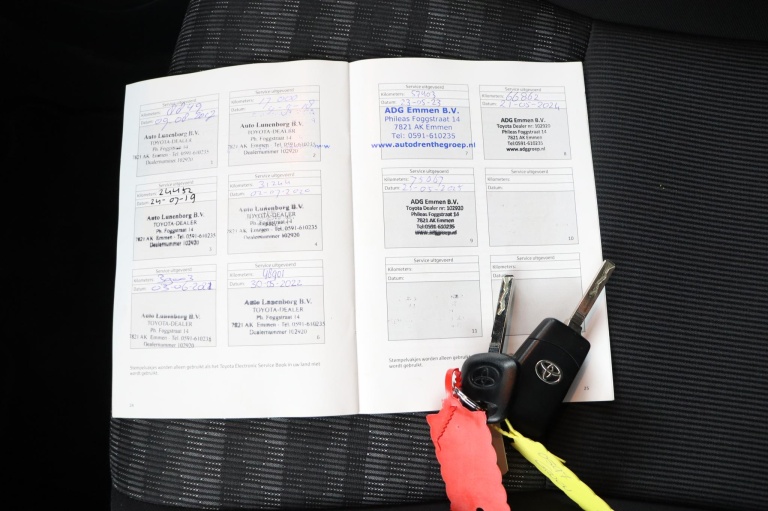 Service uitgevoerd
Kilometers:
Datum:
Auto Lunenborg B.V.
TOYOTA-DEALER
Ph. Foggstraat 14
7821 AK Emmen - Tel. 0591-610235
Dealernummer 102920
Service uitgevoerd
Kilometers:
Datum:
Auto Lunenborg B.V.
TOYOTA-DEALER
Ph. Foggstraat 14
7821 AK Emmen
Dealernummer 102920
2
Service uitgevoerd
24452
24-07-19
Auto Lunenborg B.V.
TOYOTA-DEALER
Ph. Foggstraat 14
7821 AK Emmen - Tel. 0591-610235
Dealernummer 102920
3
Service uitgevoerd
Kilometers: 31244
Datum:
Auto Lunenborg B.V.
TOYOTA-DEALER
Ph. Foggstraat 14
7821 AK Emmen - Tel. 0591-610235
Dealernummer 102920
4
Service uitgevoerd
Kilometers:
Datum:
Auto Lunenborg B.V.
TOYOTA-DEALER
Ph. Foggstraat 14
7821 AK Emmen - Tel. 0591-610235
Dealernummer 102920
Service uitgevoerd
Kilometers: 48901
Datum: 30-05-2022
Auto Lunenborg B.V.
TOYOTA-DEALER
Ph. Foggstraat 14
7821 AK Emmen - Tel. 0591-610235
Dealernummer 102920
6
Stempelvakjes worden alleen gebruikt als het Toyota Electronic Service Book in uw land niet
wordt gebruikt.
Service uitgevoerd
Kilometers: 57403
Datum: 23-05-23
ADG Emmen B.V.
Phileas Foggstraat 14
7821 AK Emmen
Tel: 0591-610235
www.autodrenthegroep.nl
7
Service uitgevoerd
Kilometers: 66862
Datum: 27-05-2024
ADG Emmen B.V.
Toyota Dealer nr: 102920
Phileas Foggstraat 14
7821 AK Emmen
Tel: 0591-610235
www.adggroep.nl
8
Service uitgevoerd
Kilometers:
Datum:
ADG Emmen B.V.
Toyota Dealer nr: 102920
Phileas Foggstraat 14
7821 AK Emmen
Tel: 0591-610235
www.adggroep.nl
9
Service uitgevoerd
Kilometers:
Datum:
10
Service uitgevoerd
Kilometers:
Datum:
11
Service uitgevoerd
Kilometers:
Datum:
Stempelvakjes worden alleen gebruikt
wordt gebruikt.